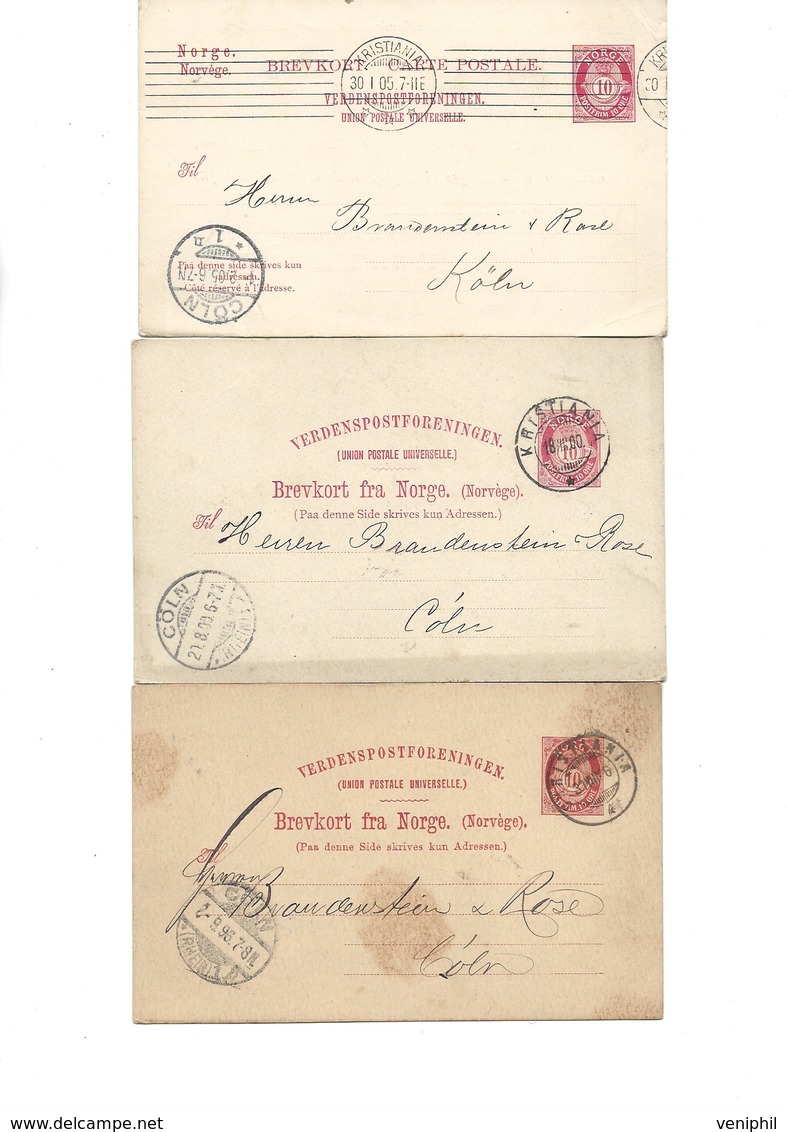 Norge.
Norvège.
BREVKORT. CARTE POSTALE.
VERDENSPOSTFORENINGEN.
UNION POSTALE UNIVERSELLE.
KRISTIANIA
30 I 05. 7-11E
NORGE
10
POSTFRIM 10 ØRE
KRI
30 I
Til
Herrn
Brandenstein & Rose
Köln
Paa denne side skrives kun
adressen.
Côté réservé à l'adresse.
CÖLN
2.05.6-7N
* 1 n *
VERDENSPOSTFORENINGEN.
(UNION POSTALE UNIVERSELLE.)
Brevkort fra Norge. (Norvège).
(Paa denne Side skrives kun Adressen.)
KRISTIANIA
NORGE
10
POSTFRIM 10 ØRE
Til
Herren Brandenstein & Rose
Cöln
CÖLN
(RHEIN)
VERDENSPOSTFORENINGEN.
(UNION POSTALE UNIVERSELLE.)
Brevkort fra Norge. (Norvège).
(Paa denne Side skrives kun Adressen.)
10
POSTFRIM 10 ØRE
Til
Herren
Brandenstein & Rose
Cöln
CÖLN
2-9.96.7-8N.
(RHEIN)
www.delcampe.net
veniphil